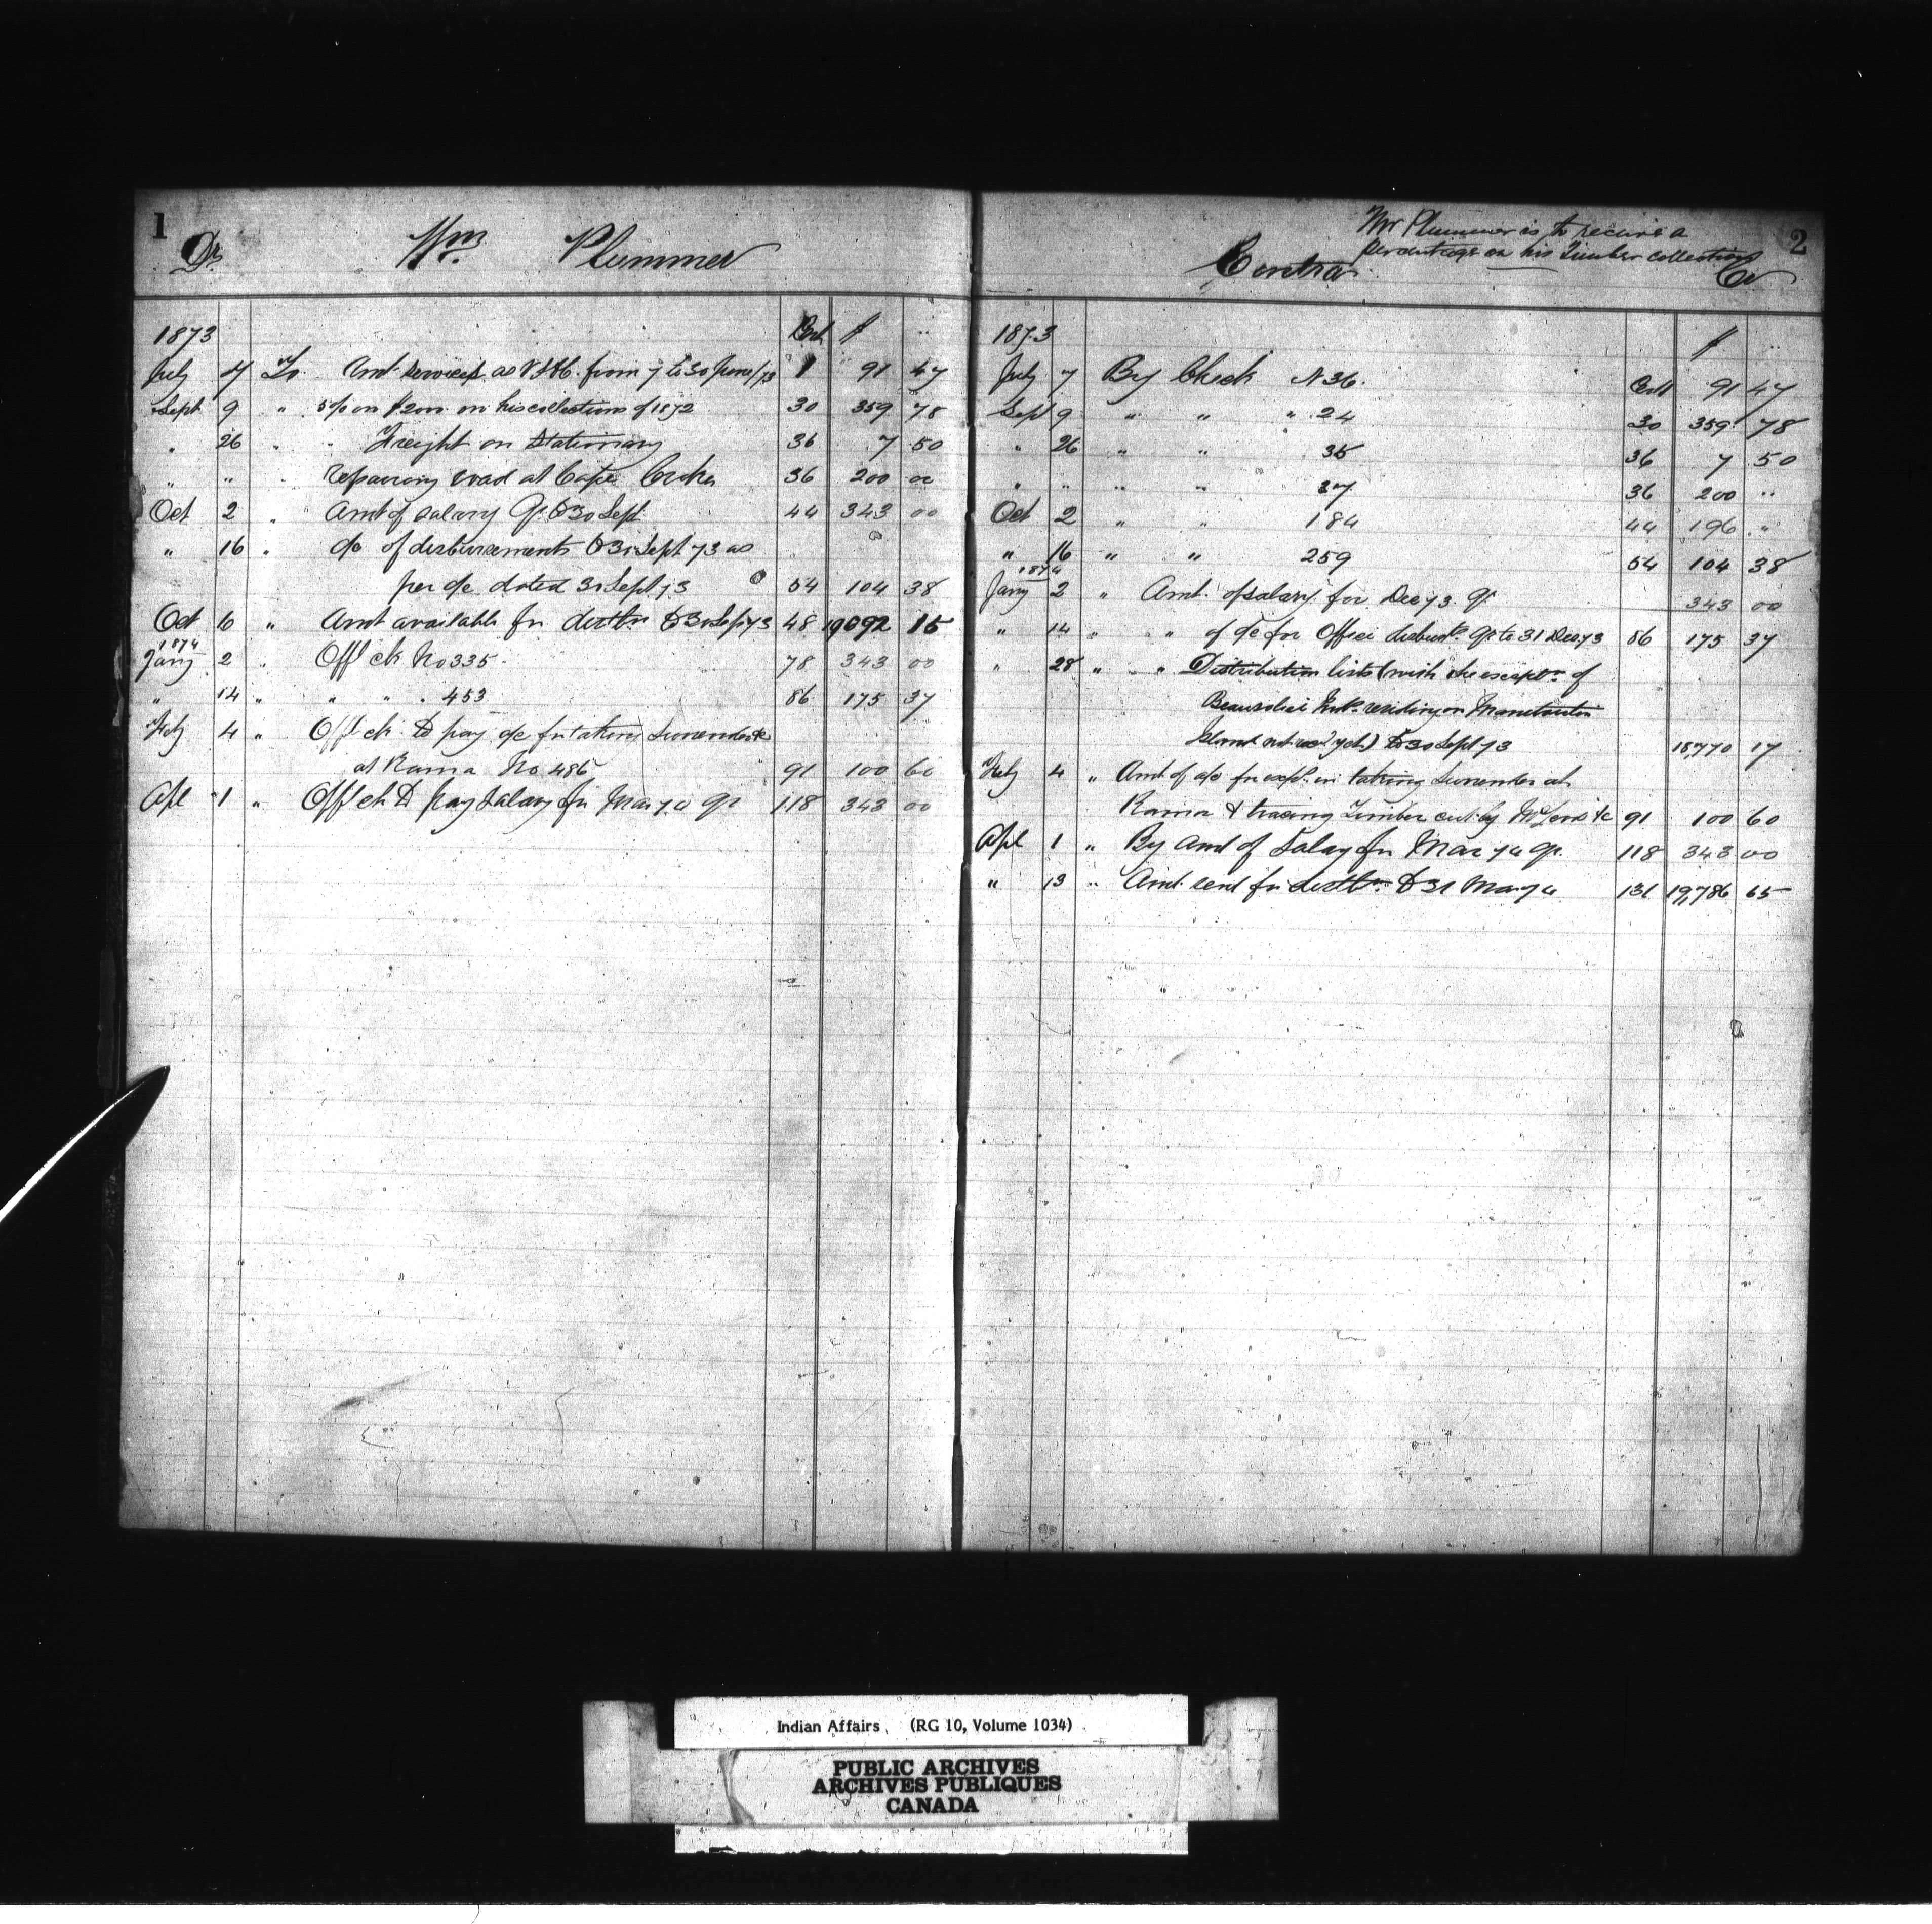 1
Dr Wm Plummer
1873 $
July 7 To Amt services as V.S. from 7 to 30 June/73 1 91 47
Sept 9 " 5 % on $ on his collections of 1872 30 359 78
" 26 " " Freight on Stationary 36 7 50
" " " repairing road at Cape Croker 36 200 00
Oct 2 " Amt of salary Qr to 30 Sept 44 343 00
" 16 " do of disbursements to 30 Sept 73 as
per a/c dated 30 Sept 73 54 104 38
Oct 10 " Amt available for distbn to 30 Sep 73 48 19092 15
1874
Jany 2 " Offl ck No 335 78 343 00
" 14 " " " " 453 86 175 37
Feby 4 " Offl ck to pay a/c for taking Surrender &c
at Rama No 486 91 100 60
Apl 1 " Offl ck to pay Salary for Mar 74 qr 118 343 00
2
Mr Plummer is to receive a
percentage on his Timber collections
Contra Cr
1873 $
July 7 By Check N 36. 91 47
Sept 9 " " " 24 30 359 78
" 26 " " 35 36 7 50
" " " " 37 36 200 ..
Oct 2 " " 184 44 196 ..
" 16 " " 259 54 104 38
1874
Jany 2 " Amt. of salary for Dec 73 qr 343 00
" 14 " " of a/c for Office disbust. qr to 31 Dec 73 86 175 37
" 28 " " Distribution lists (with the exceptn of
Beausoliel Inds. residing on Manitoulin
Island not recd yet) to 30 Sept 73 18,770 17
Feby 4 " Amt of a/c for exps. in taking Surrender at
Rama & tracing Timber cut by &c 91 100 60
Apl 1 " By Amt of Salary for Mar 74 qr. 118 343 00
" 13 " Amt. send for distbn. to 31 Mar 74 131 19,786 65
Indian Affairs. (RG 10, Volume 1034)
PUBLIC ARCHIVES
ARCHIVES PUBLIQUES
CANADA